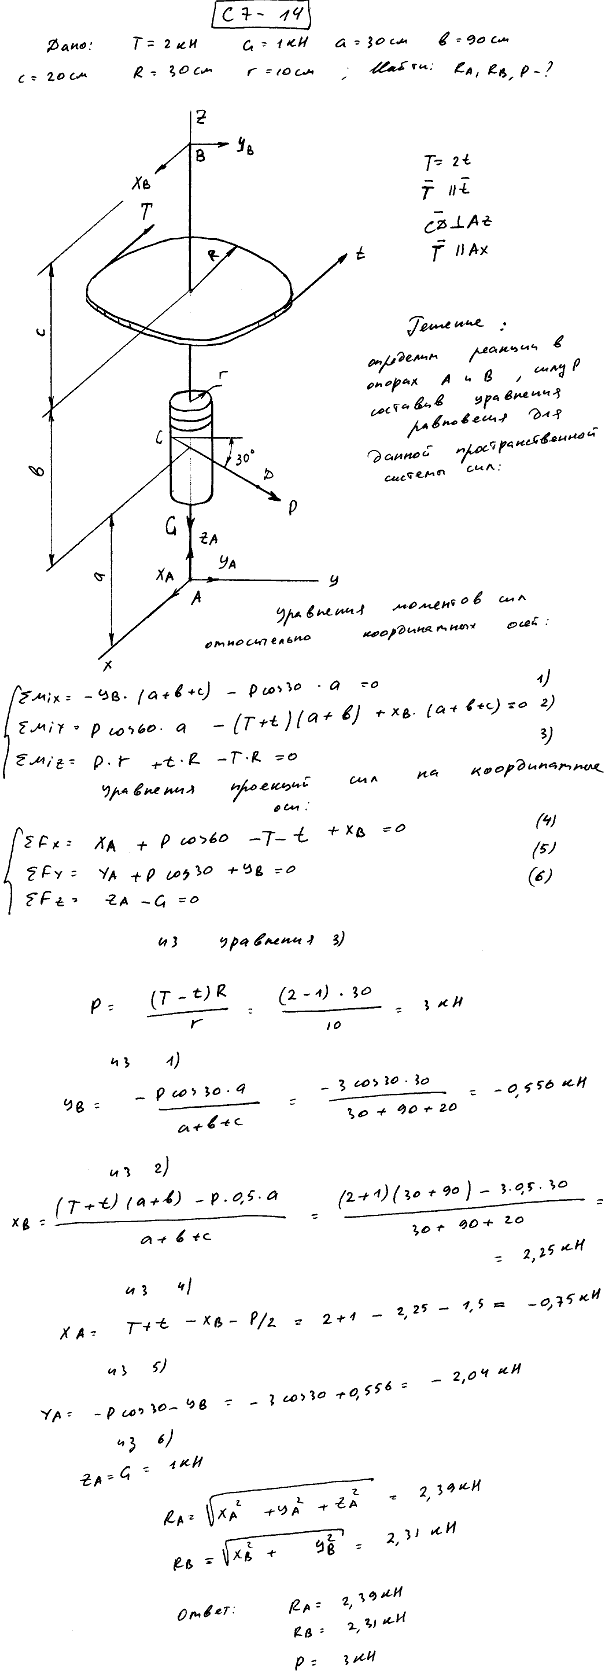 С7-14
Дано: T = 2кН G = 1кН a = 30см в = 90см
c = 20см R = 30см r = 10см ; Найти: RA, RB, P - ?
z
B yB
xB
T
R
t
c
r
C
30°
D
P
в
G
zA
yA
a
xA
A
y
x
T = 2t
T̄ ∥ t̄
C̄D̄ ⊥ Az
T̄ ∥ Ax
Решение :
определим реакции в
опорах A и B , силу P
составив уравнения
равновесия для
данной пространственной
системы сил:
уравнения моментов сил
относительно координатных осей:
ΣMix = -yB · (a+в+c) - Pcos30 · a = 0 1)
ΣMiY = P cos60 · a - (T+t)(a+в) + xB · (a+в+c) = 0 2)
ΣMiz = P · r + t · R - T · R = 0 3)
уравнения проекций сил на координатные
оси:
ΣFx = XA + P cos60 - T - t + xB = 0 (4)
ΣFY = YA + P cos30 + yB = 0 (5)
ΣFz = zA - G = 0 (6)
из уравнения 3)
P = (T - t) R / r = (2-1) · 30 / 10 = 3 кН
из 1)
yB = -Pcos30 · a / a+в+c = -3cos30·30 / 30+90+20 = -0,556 кН
из 2)
xB = (T+t)(a+в) - P·0,5·a / a+в+c = (2+1)(30+90) - 3·0,5·30 / 30+90+20 =
= 2,25 кН
из 4)
XA = T+t - XB - P/2 = 2+1 - 2,25 - 1,5 = -0,75 кН
из 5)
YA = -Pcos30 - yB = -3cos30 + 0,556 = -2,04 кН
из 6)
zA = G = 1кН
RA = √(XA² + yA² + zA²) = 2,39 кН
RB = √(XB² + yB²) = 2,31 кН
Ответ: RA = 2,39кН
RB = 2,31кН
P = 3кН